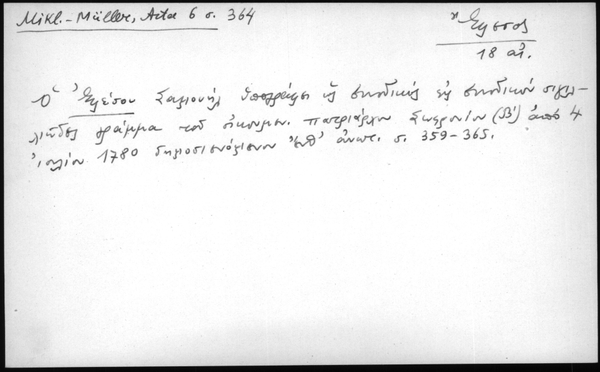 Mikl.-Müller, Acta 6 σ. 364
Ἔφεσος
18 αἰ.
Ὁ Ἐφέσου Σαμουὴλ ὑπογράφει ὡς συνοδικὸς εἰς συνοδικὸν σιγιλ-
λιῶδες γράμμα τοῦ οἰκουμεν. πατριάρχου Σωφρονίου (Β´) ἀπὸ 4
Ἰουλίου 1780 δημοσιευόμενον ἀνωτ. σ. 359-365.